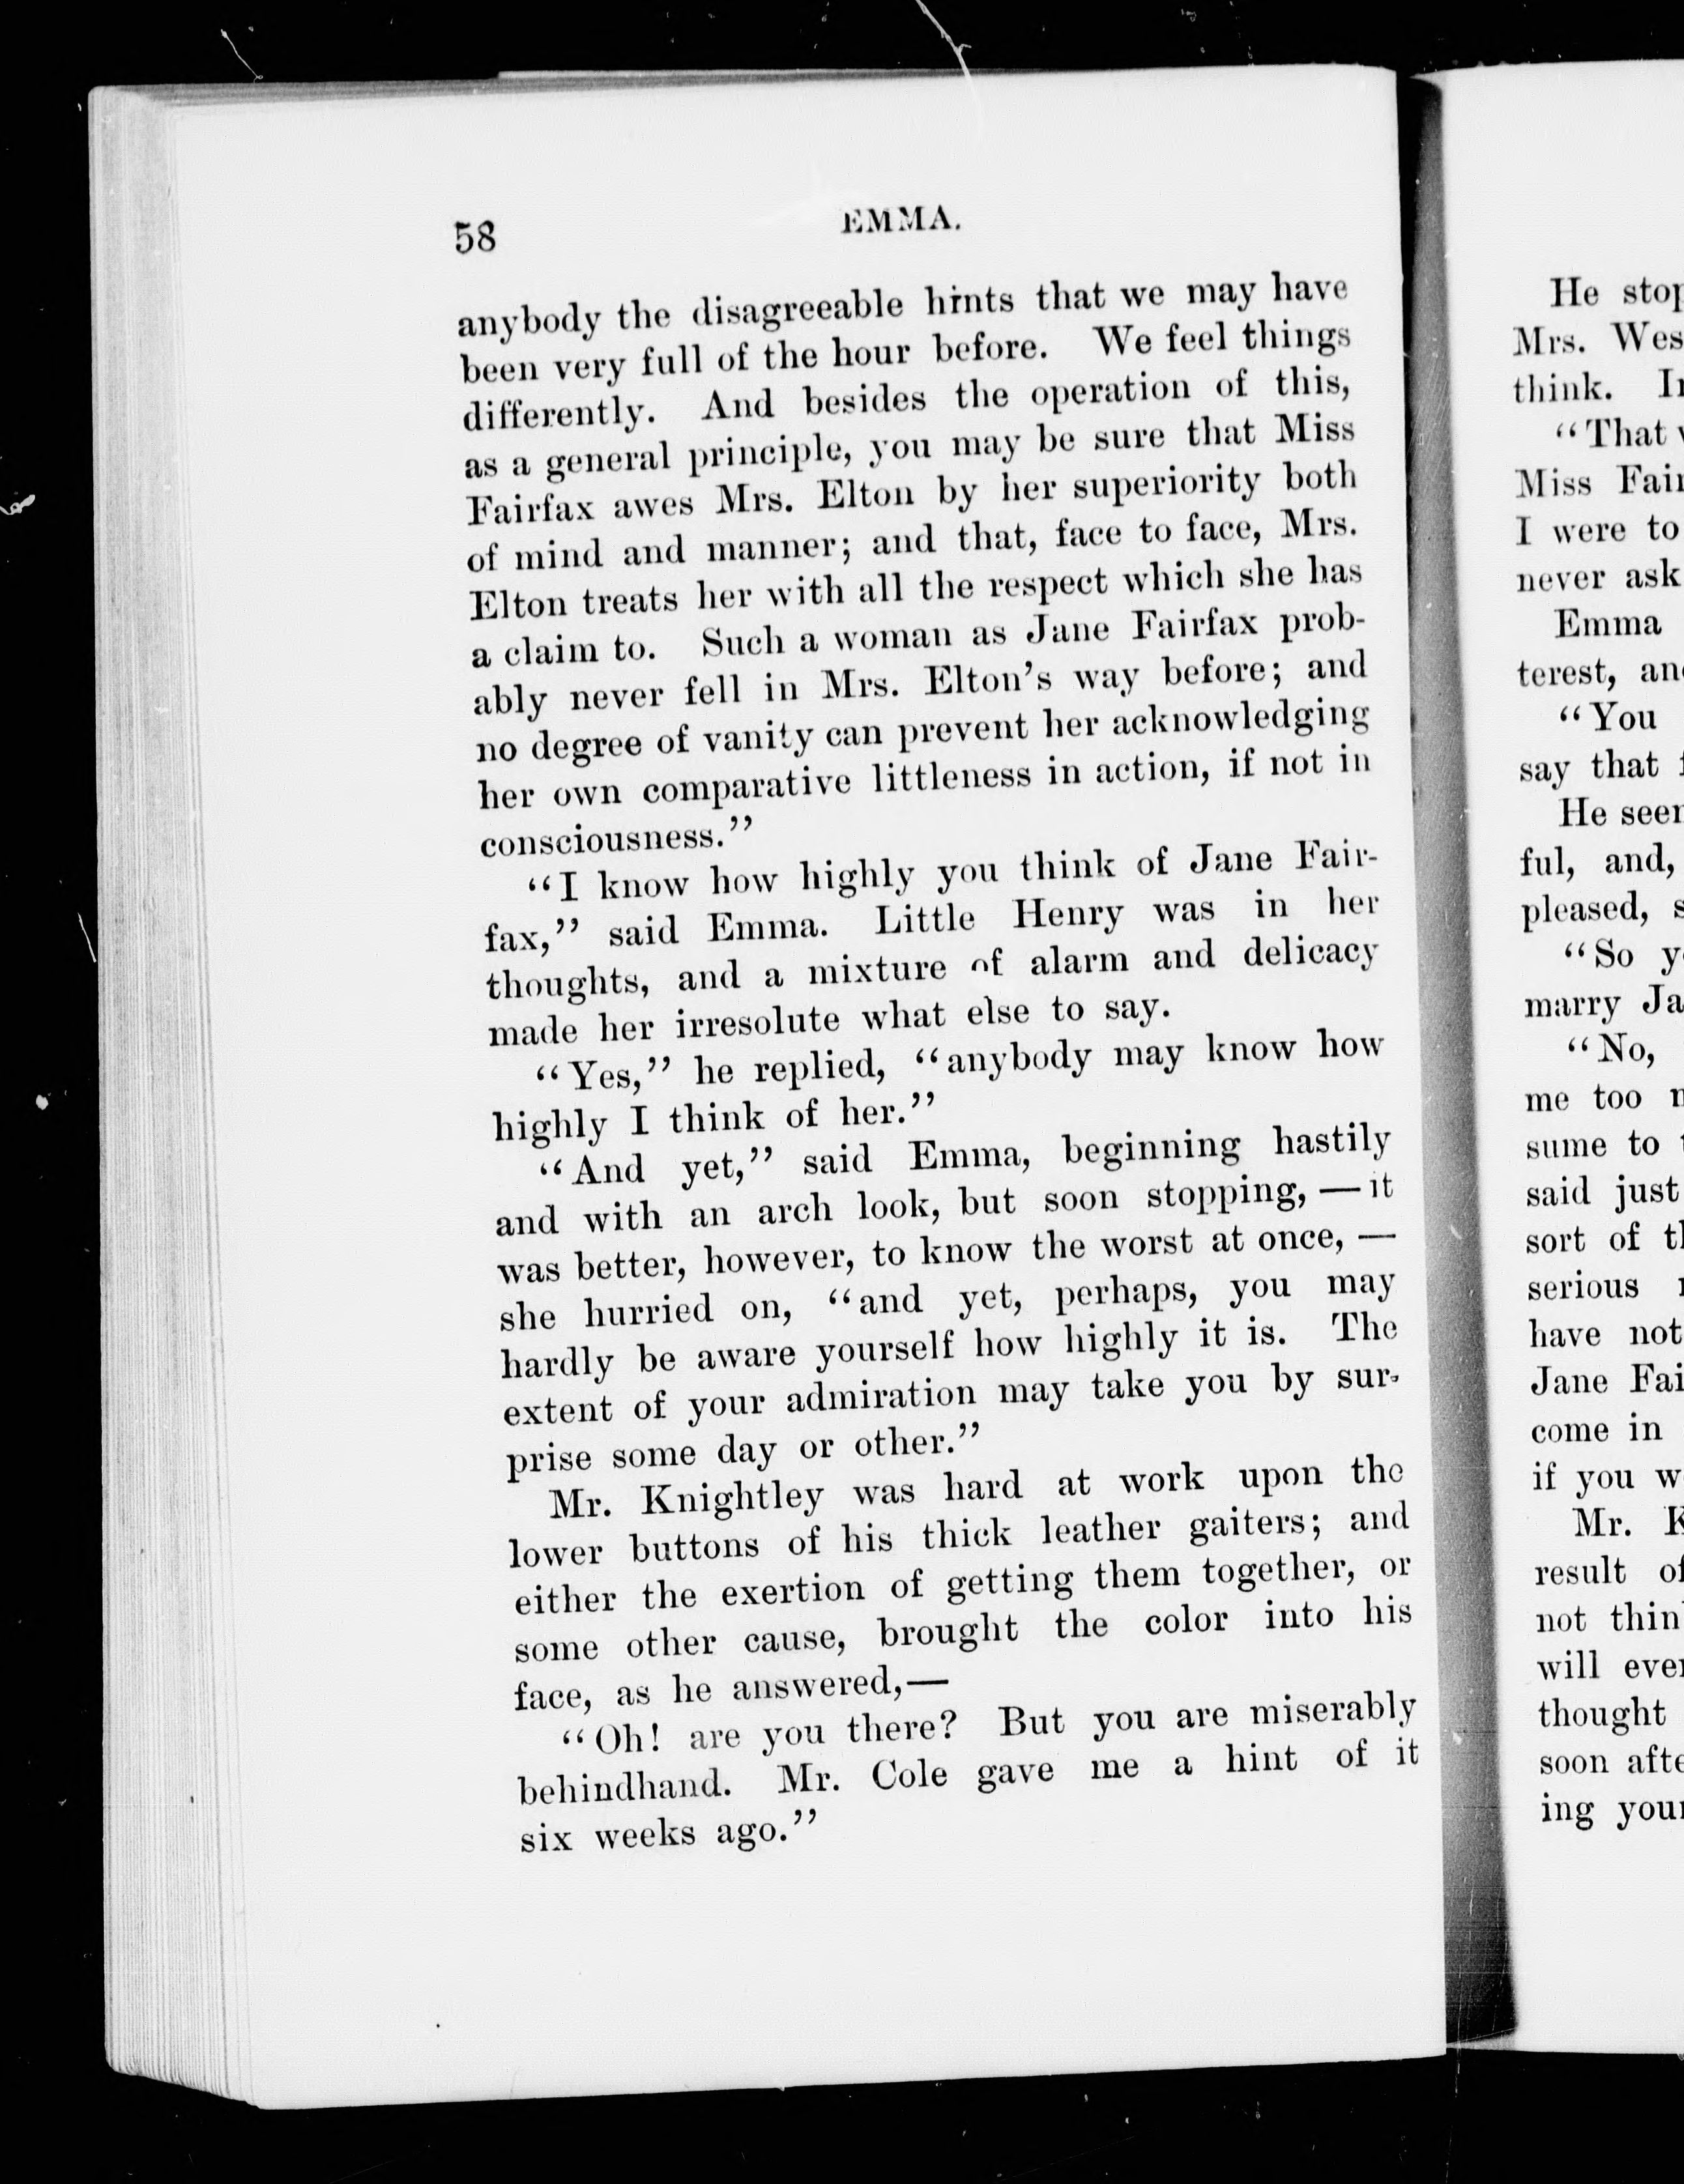 58
EMMA.
anybody the disagreeable hints that we may have
been very full of the hour before. We feel things
differently. And besides the operation of this,
as a general principle, you may be sure that Miss
Fairfax awes Mrs. Elton by her superiority both
of mind and manner; and that, face to face, Mrs.
Elton treats her with all the respect which she has
a claim to. Such a woman as Jane Fairfax prob-
ably never fell in Mrs. Elton's way before; and
no degree of vanity can prevent her acknowledging
her own comparative littleness in action, if not in
consciousness."
"I know how highly you think of Jane Fair-
fax," said Emma. Little Henry was in her
thoughts, and a mixture of alarm and delicacy
made her irresolute what else to say.
"Yes," he replied, "anybody may know how
highly I think of her."
"And yet," said Emma, beginning hastily
and with an arch look, but soon stopping, — it
was better, however, to know the worst at once, —
she hurried on, "and yet, perhaps, you may
hardly be aware yourself how highly it is. The
extent of your admiration may take you by sur-
prise some day or other."
Mr. Knightley was hard at work upon the
lower buttons of his thick leather gaiters; and
either the exertion of getting them together, or
some other cause, brought the color into his
face, as he answered,—
"Oh! are you there? But you are miserably
behindhand. Mr. Cole gave me a hint of it
six weeks ago."
He
Mrs.
think.
"That
Miss
I were to
never ask
Emma
terest,
"You
say that
He
ful, and,
pleased,
"So
marry
"No,
me too
sume to
said just
sort of
serious
have not
Jane
come in
if you
Mr.
result
not
will
thought
soon
ing